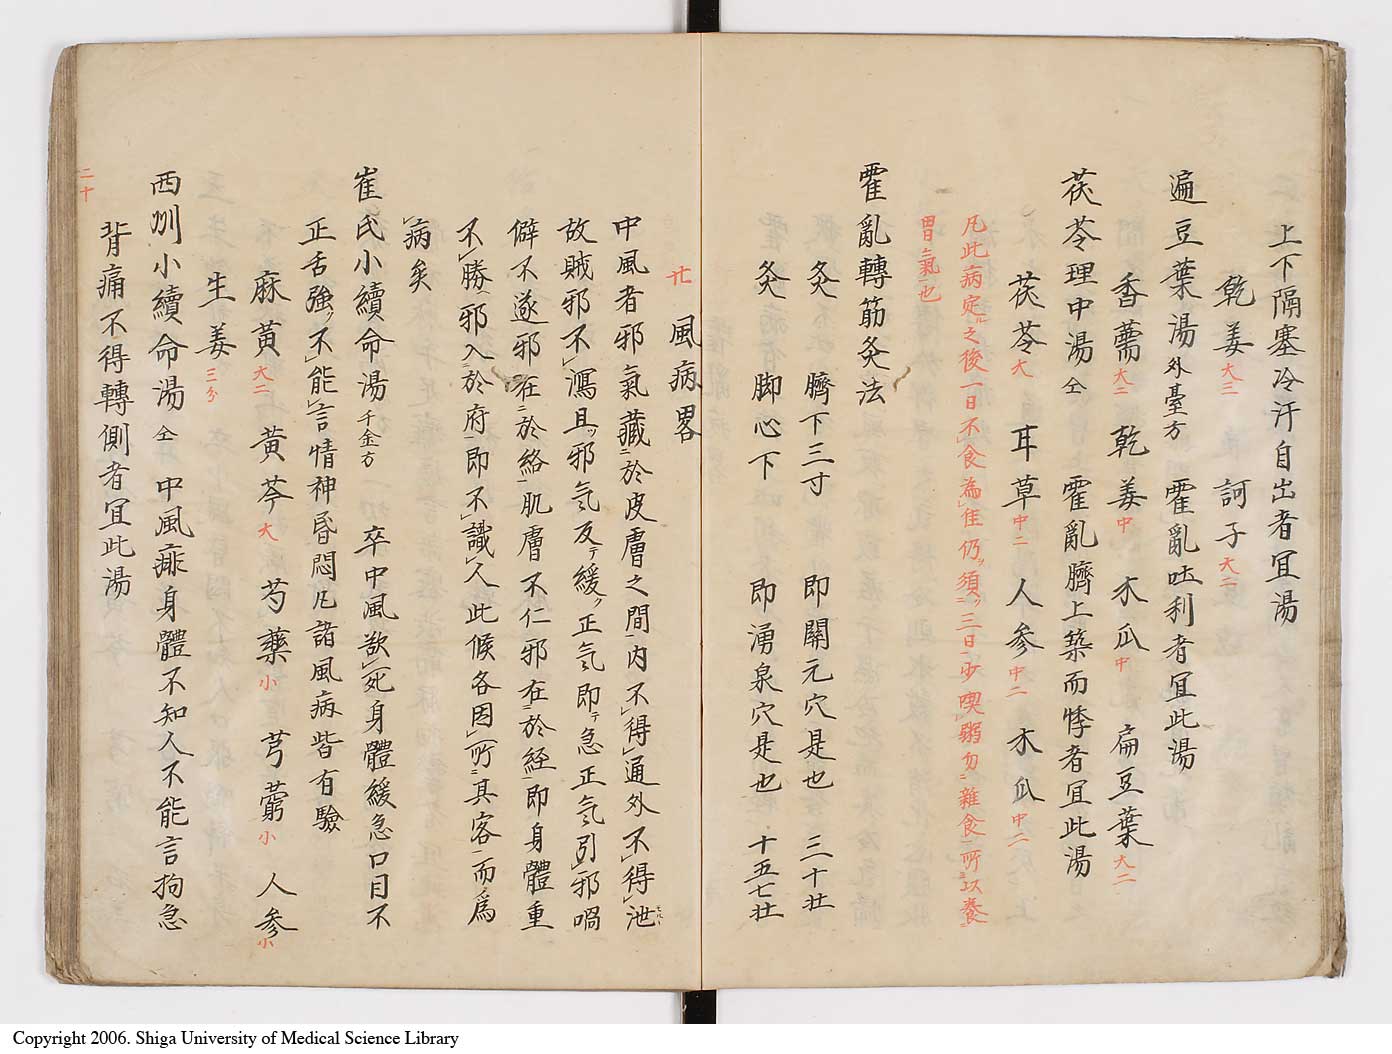 上下隔塞冷汗自出者冝湯
乾姜大三 訶子大二
遍豆葉湯外臺方 霍亂吐利者冝此湯
香薷大二 乾姜中 木瓜中 扁豆葉大二
茯苓理中湯仝 霍亂臍上築而悸者冝此湯
茯苓大 耳草中二 人参中二 木瓜中二
凡此病定之後一日不食為佳仍須三日少喫粥勿雜食所以養
胃氣也
霍亂轉筋灸法
灸 臍下三寸 即關元穴是也 三十壮
灸 脚心下 即湧泉穴是也 十五七壮
廿 風病畧
中風者邪氣藏於皮膚之間内不得通外不得泄
故賊邪不瀉且邪気反緩正気即急正気引邪喎
僻不遂邪在於絡肌膚不仁邪在於経即身體重
不勝邪入於府即不識人此候各因所其客而爲
病矣
崔氏小續命湯千金方 卒中風欲死身體緩急口目不
正舌強不能言情神昏悶凡諸風病皆有驗
麻黄大二 黄芩大 芍藥小 芎藭小 人参小
生姜三分
西州小續命湯仝 中風痱身體不知人不能言拘急
背痛不得轉側者冝此湯
二十
Copyright 2006. Shiga University of Medical Science Library